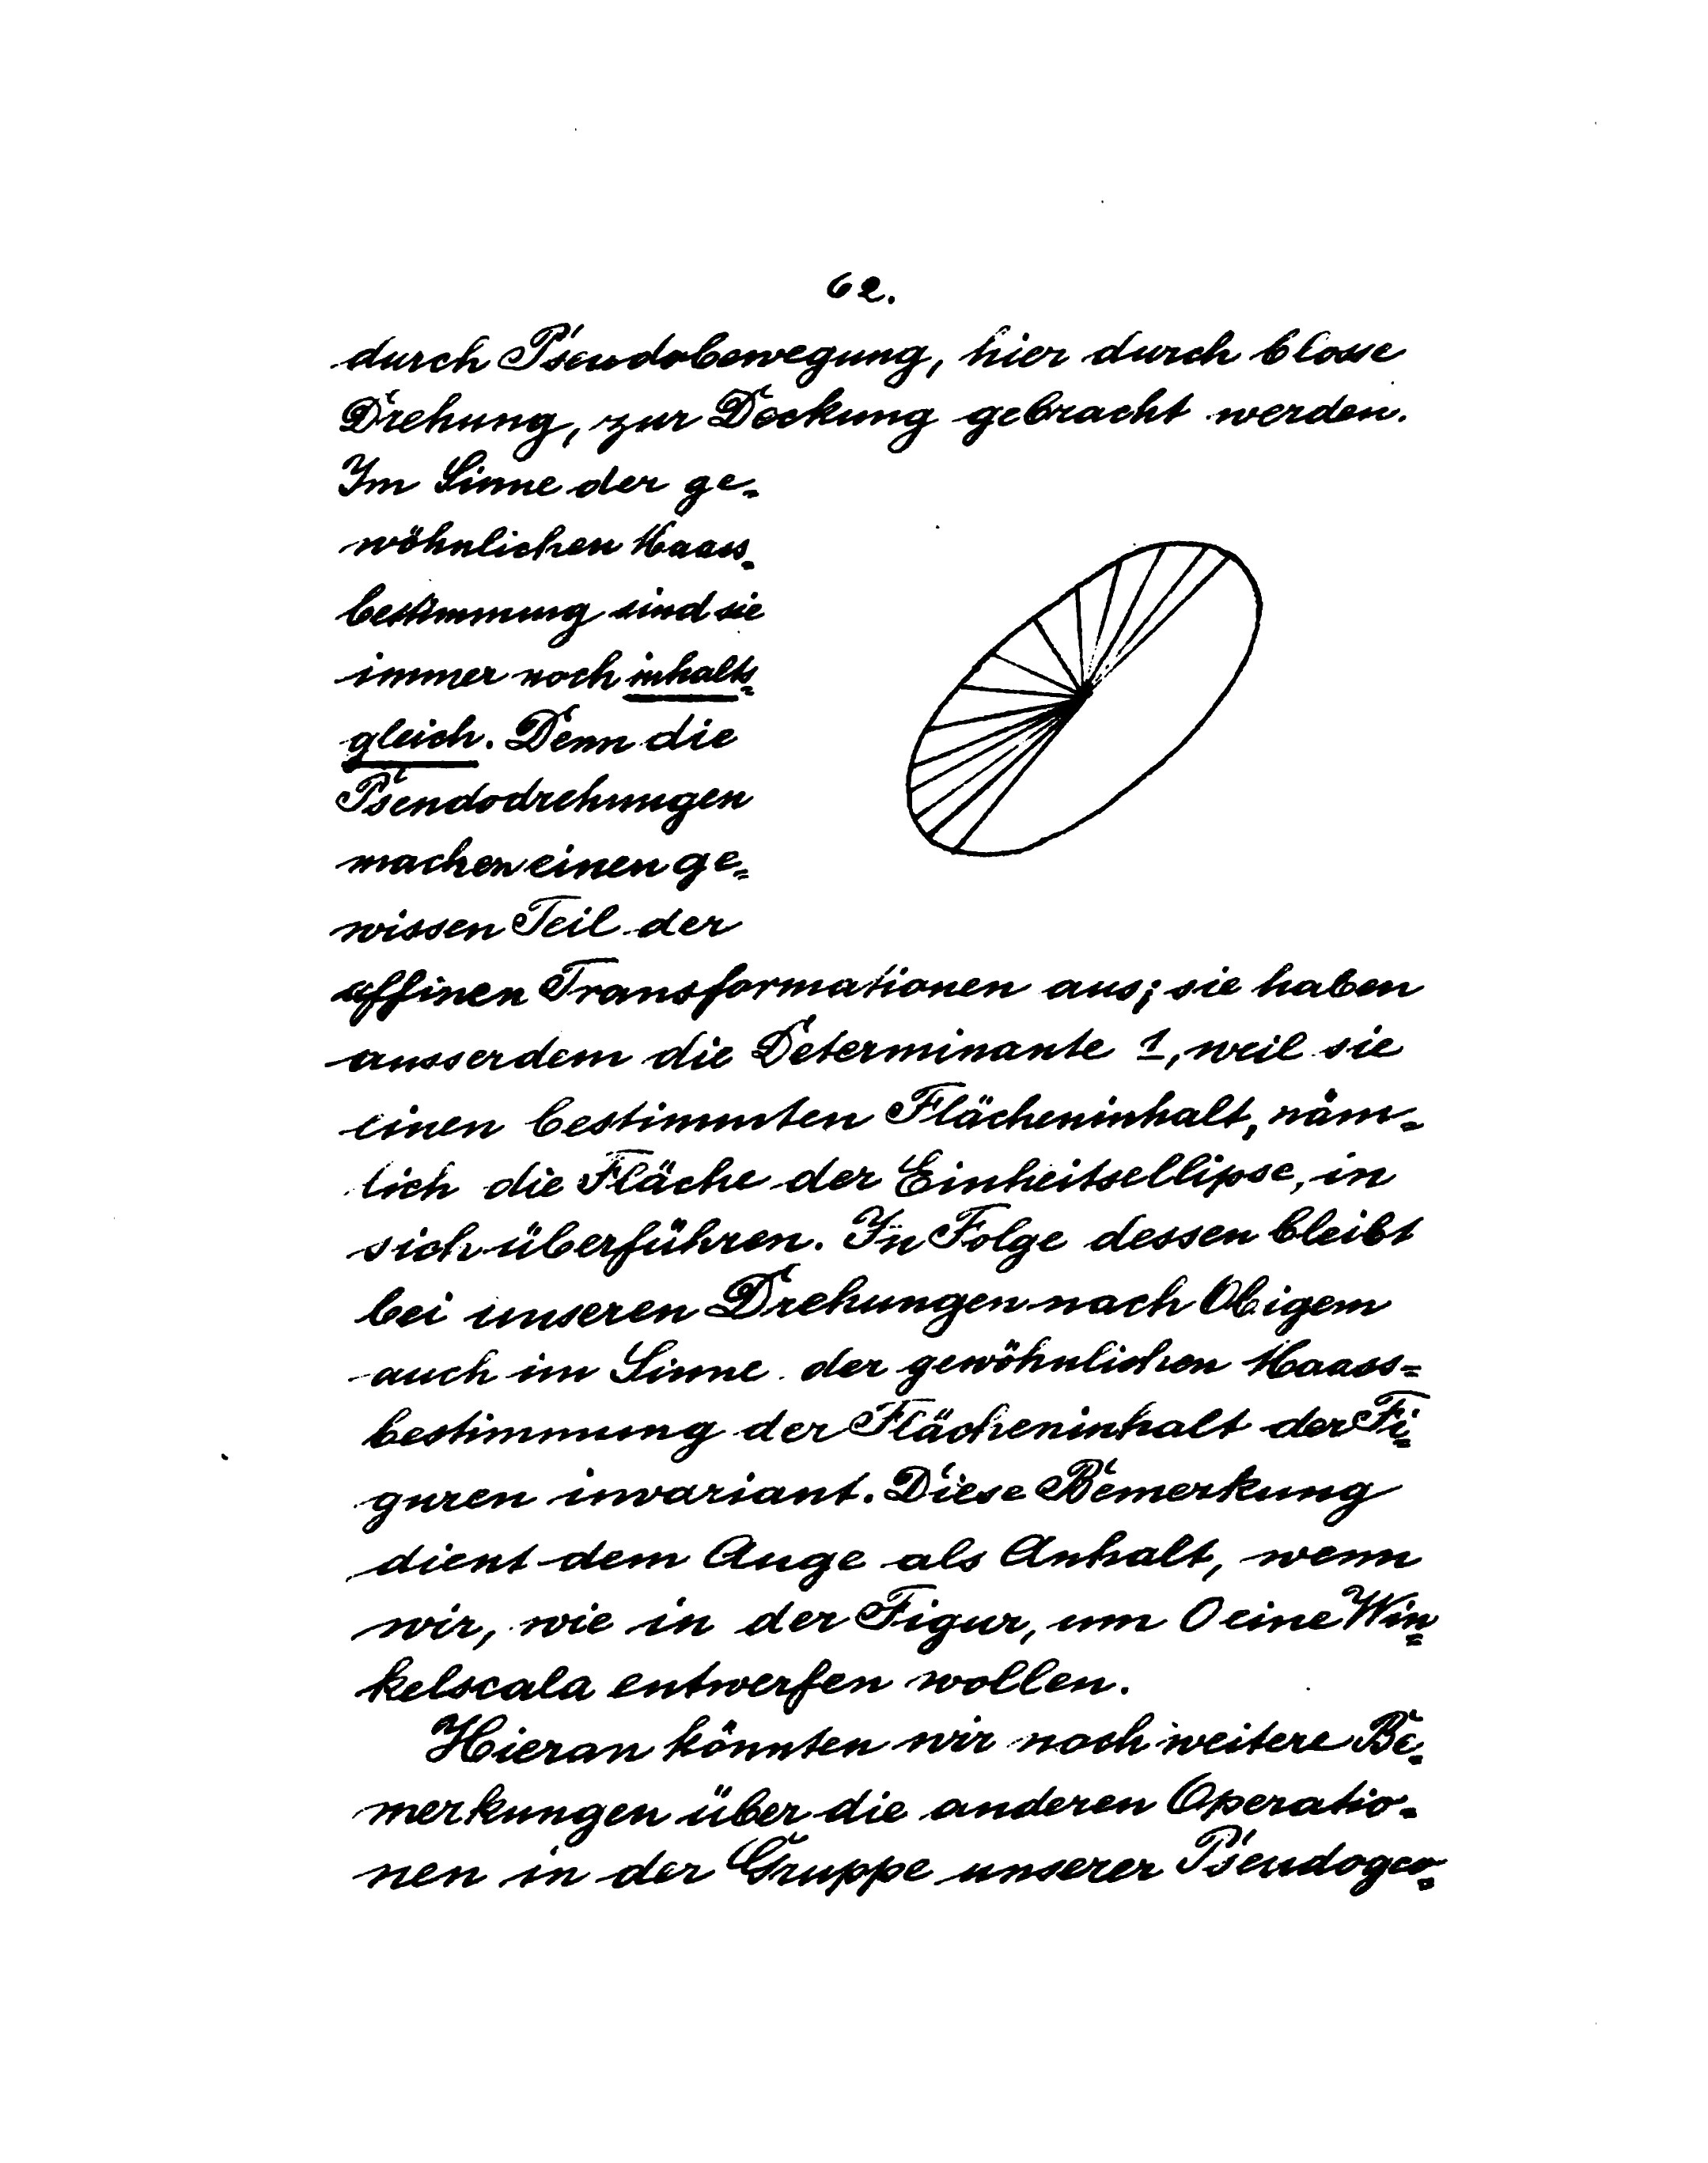 62.
durch Pseudobewegung, hier durch blosse
Drehung, zur Deckung gebracht werden.
Im Sinne der ge=
wöhnlichen Maass=
bestimmung sind sie
immer noch inhalts=
gleich. Denn die
Pseudodrehungen
machen einen ge=
wissen Teil der
affinen Transformationen aus; sie haben
ausserdem die Determinante 1, weil sie
einen bestimmten Flächeninhalt, näm=
lich die Fläche der Einheitsellipse, in
sich überführen. In Folge dessen bleibt
bei unseren Drehungen nach Obigem
auch im Sinne der gewöhnlichen Maass=
bestimmung der Flächeninhalt der Fi=
guren invariant. Diese Bemerkung
dient dem Auge als Anhalt, wenn
wir, wie in der Figur, um O eine Win=
kelscala entwerfen wollen.
Hieran könnten wir noch weitere Be=
merkungen über die anderen Operatio=
nen in der Gruppe unserer Pseudogeo=